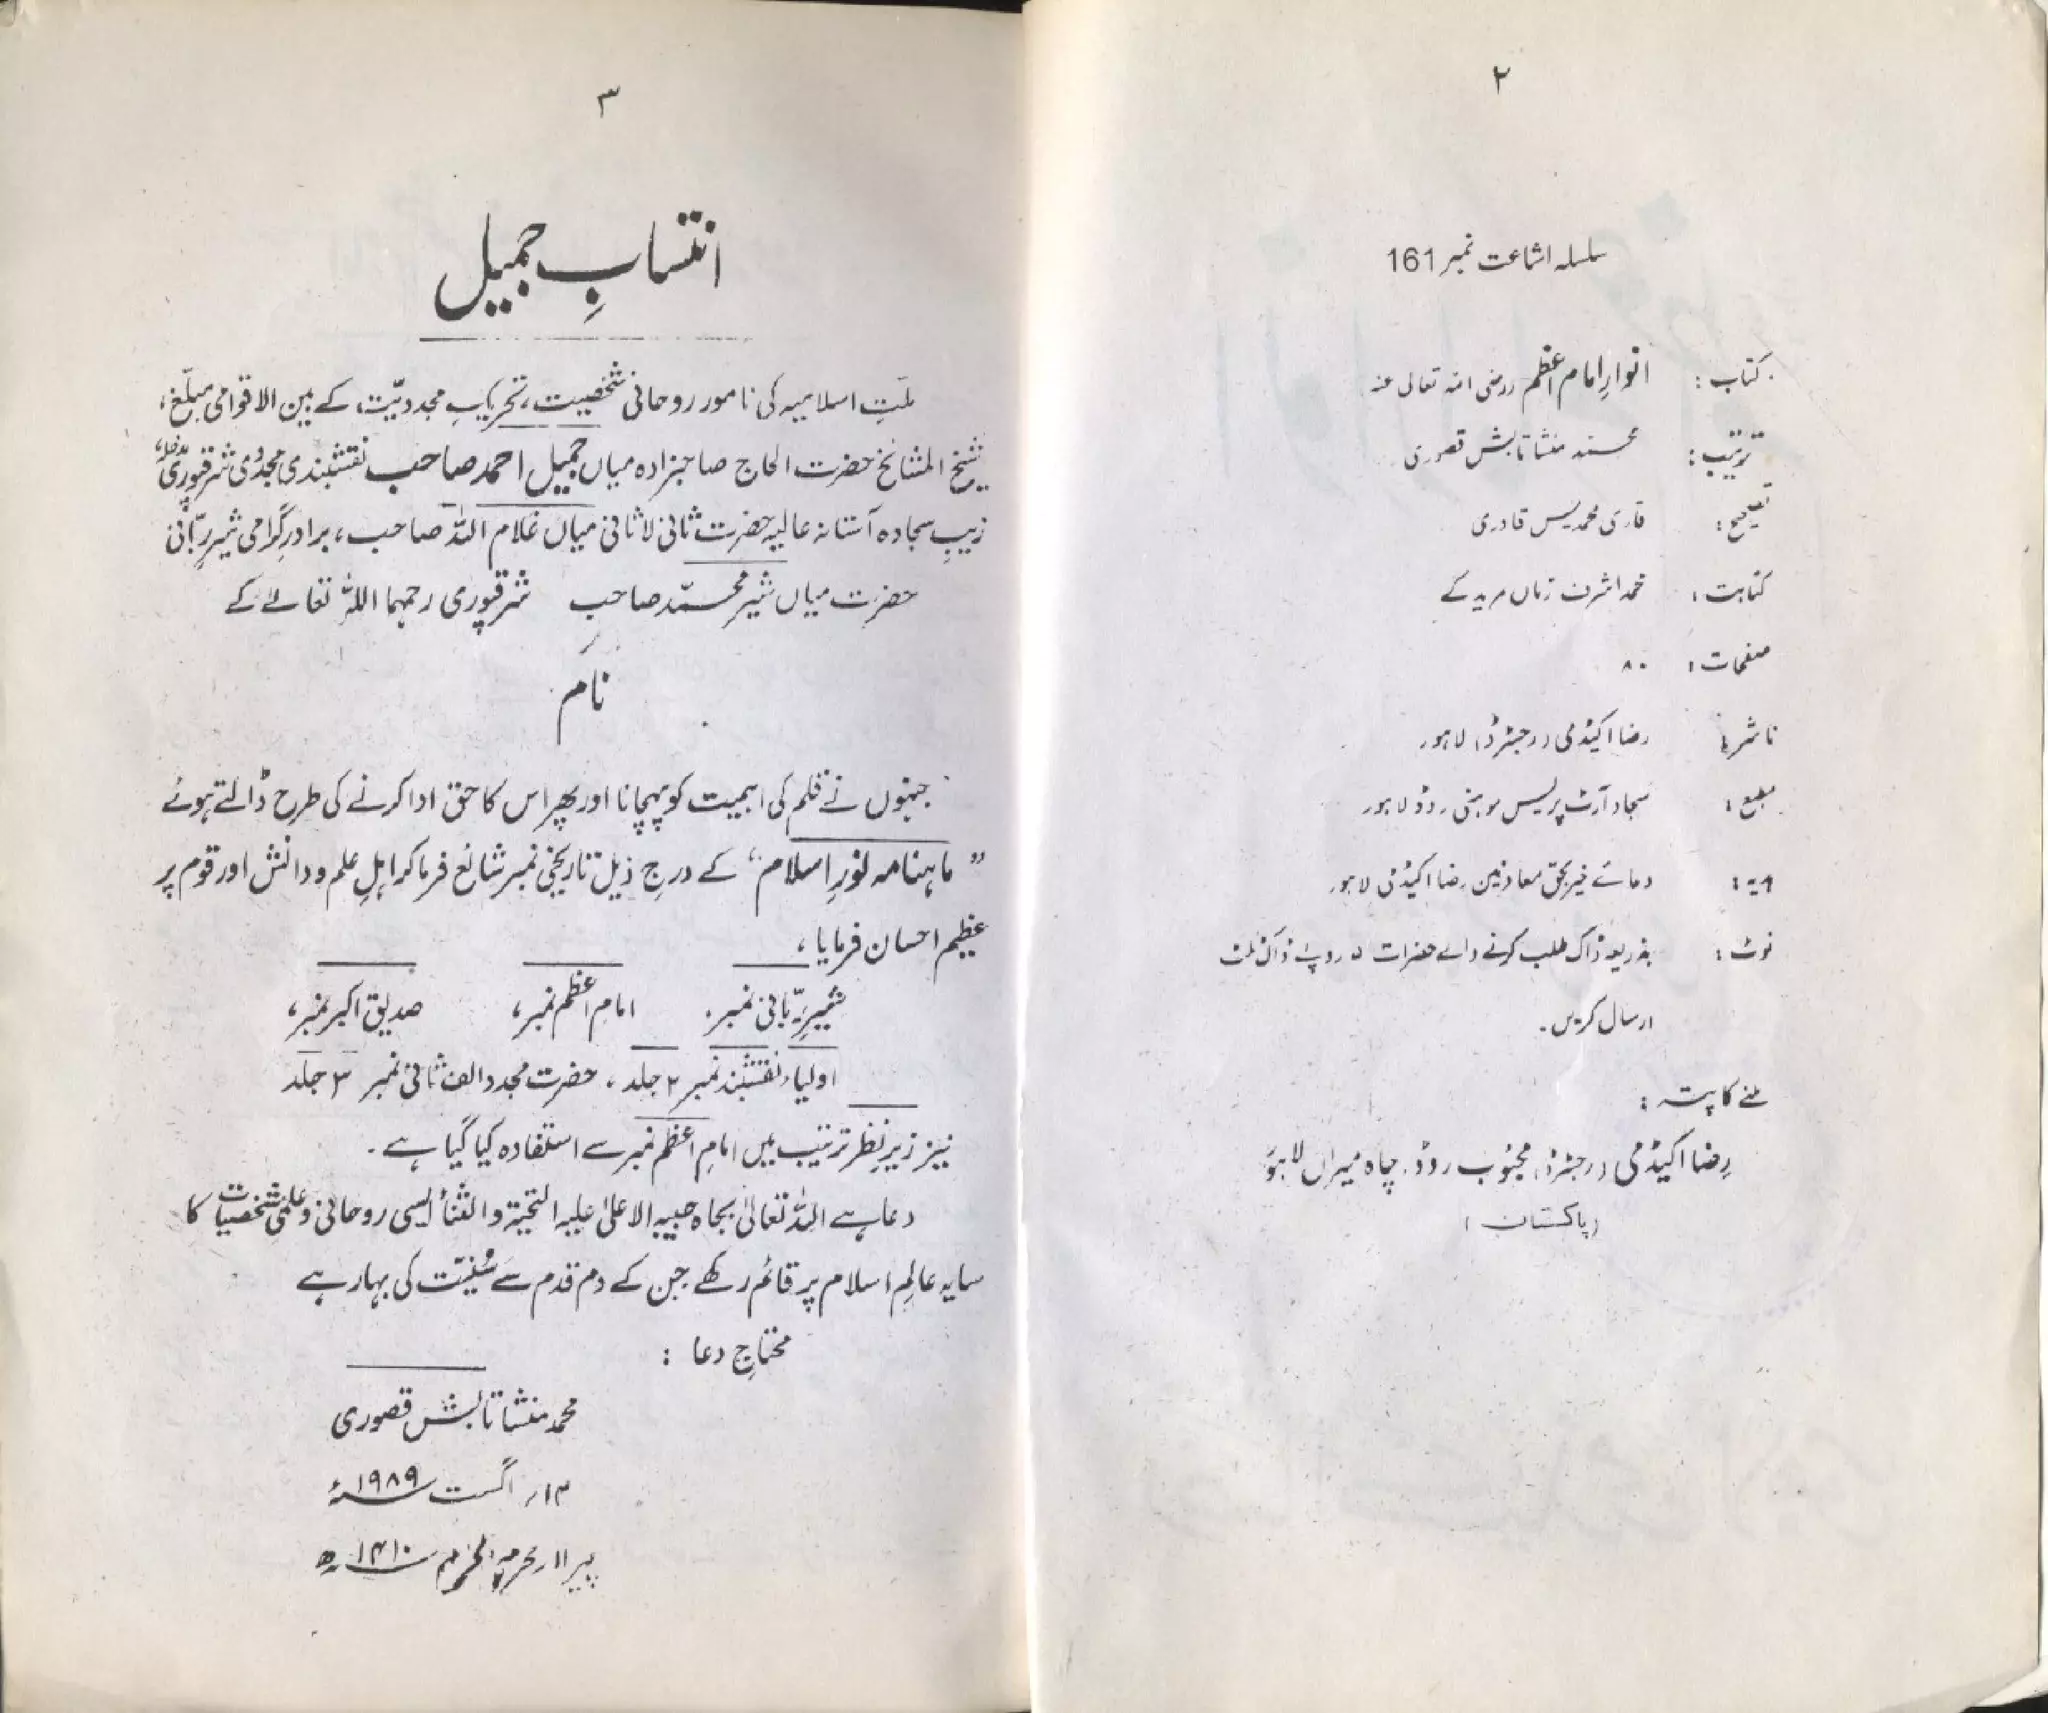 ۲
سلسلہ اشاعت نمبر 161
کتاب : انوارِ امام اعظم (رضی اللہ تعالیٰ عنہ
ترتیب : محمد منشا تابش قصوری
تصحیح : قاری محمد یٰس قادری
کتابت : محمد اشرف زماں مریدکے
صفحات : ۸۰
ناشر : رضا اکیڈمی (رجسٹرڈ) لاہور
مطبع : سجاد آرٹ پریس موہنی روڈ لاہور
ہدیہ : دعائے خیر بحق معاونین رضا اکیڈمی لاہور
نوٹ : بذریعہ ڈاک طلب کرنے والے حضرات ۵ روپے ڈاک ٹکٹ
ارسال کریں۔
ملنے کا پتہ :
رضا اکیڈمی (رجسٹرڈ) محبوب روڈ، چاہ میراں لاہور
(پاکستان)
۳
انتسابِ جمیل
ملتِ اسلامیہ کی نامور روحانی شخصیت، تحریکِ مجددیّت، کے بین الاقوامی مبلّغ،
شیخ المشائخ حضرت الحاج صاحبزادہ میاں جمیل احمد صاحب نقشبندی مجددی شرقپوری مدظلہ،
زیبِ سجادہ آستانہ عالیہ حضرت ثانی لاثانی میاں غلام اللہ صاحب، برادرِ گرامی شیرِ ربّانی
حضرت میاں شیر محمد صاحب شرقپوری رحمہما اللہ تعالےٰ کے
نام
جنہوں نے قلم کی اہمیت کو پہچانا اور پھر اس کا حق ادا کرنے کی طرح ڈالتے ہوئے
”ماہنامہ نورِ اسلام“ کے درجِ ذیل تاریخی نمبر شائع فرما کر اہلِ علم و دانش اور قوم پر
عظیم احسان فرمایا،
شیرِ ربّانی نمبر، امامِ اعظم نمبر، صدیق اکبر نمبر،
اولیاء نقشبند نمبر ۲ جلد، حضرت مجدد الف ثانی نمبر ۳ جلد
نیز زیرِ نظر ترتیب میں امامِ اعظم نمبر سے استفادہ کیا گیا ہے۔
دعا ہے اللہ تعالیٰ بجاہ حبیبہ الاعلیٰ علیہ التحیۃ والثناء ایسی روحانی و علمی شخصیات کا
سایہ عالمِ اسلام پر قائم رکھے جن کے دم قدم سے سُنیّت کی بہار ہے
محتاجِ دعا :
محمد منشا تابش قصوری
۱۴؍ اگست ۱۹۸۹ء
پیر ۱۱؍ محرم الحرام ۱۴۱۰ھ